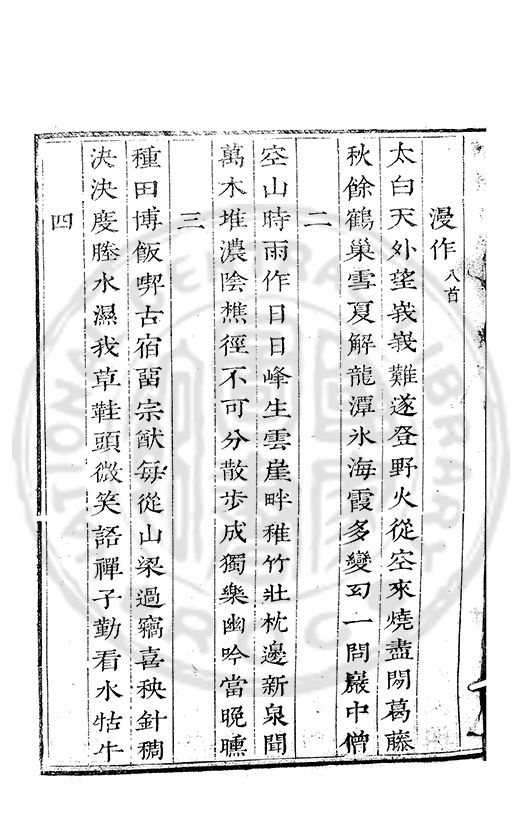 漫作八首
太白天外望峩峩難遂登野火從空來燒盡閒葛藤
秋餘鶴巢雪夏解龍潭氷海霞多變幻一問巖中僧
二
空山時雨作日日峰生雲崖畔稚竹壯枕邊新泉聞
萬木堆濃陰樵徑不可分散步成獨樂幽吟當晚曛
三
種田博飯喫古宿畱宗猷每從山梁過竊喜秧針稠
決決度塍水濕我草鞋頭微笑語禪子勤看水牯牛
四